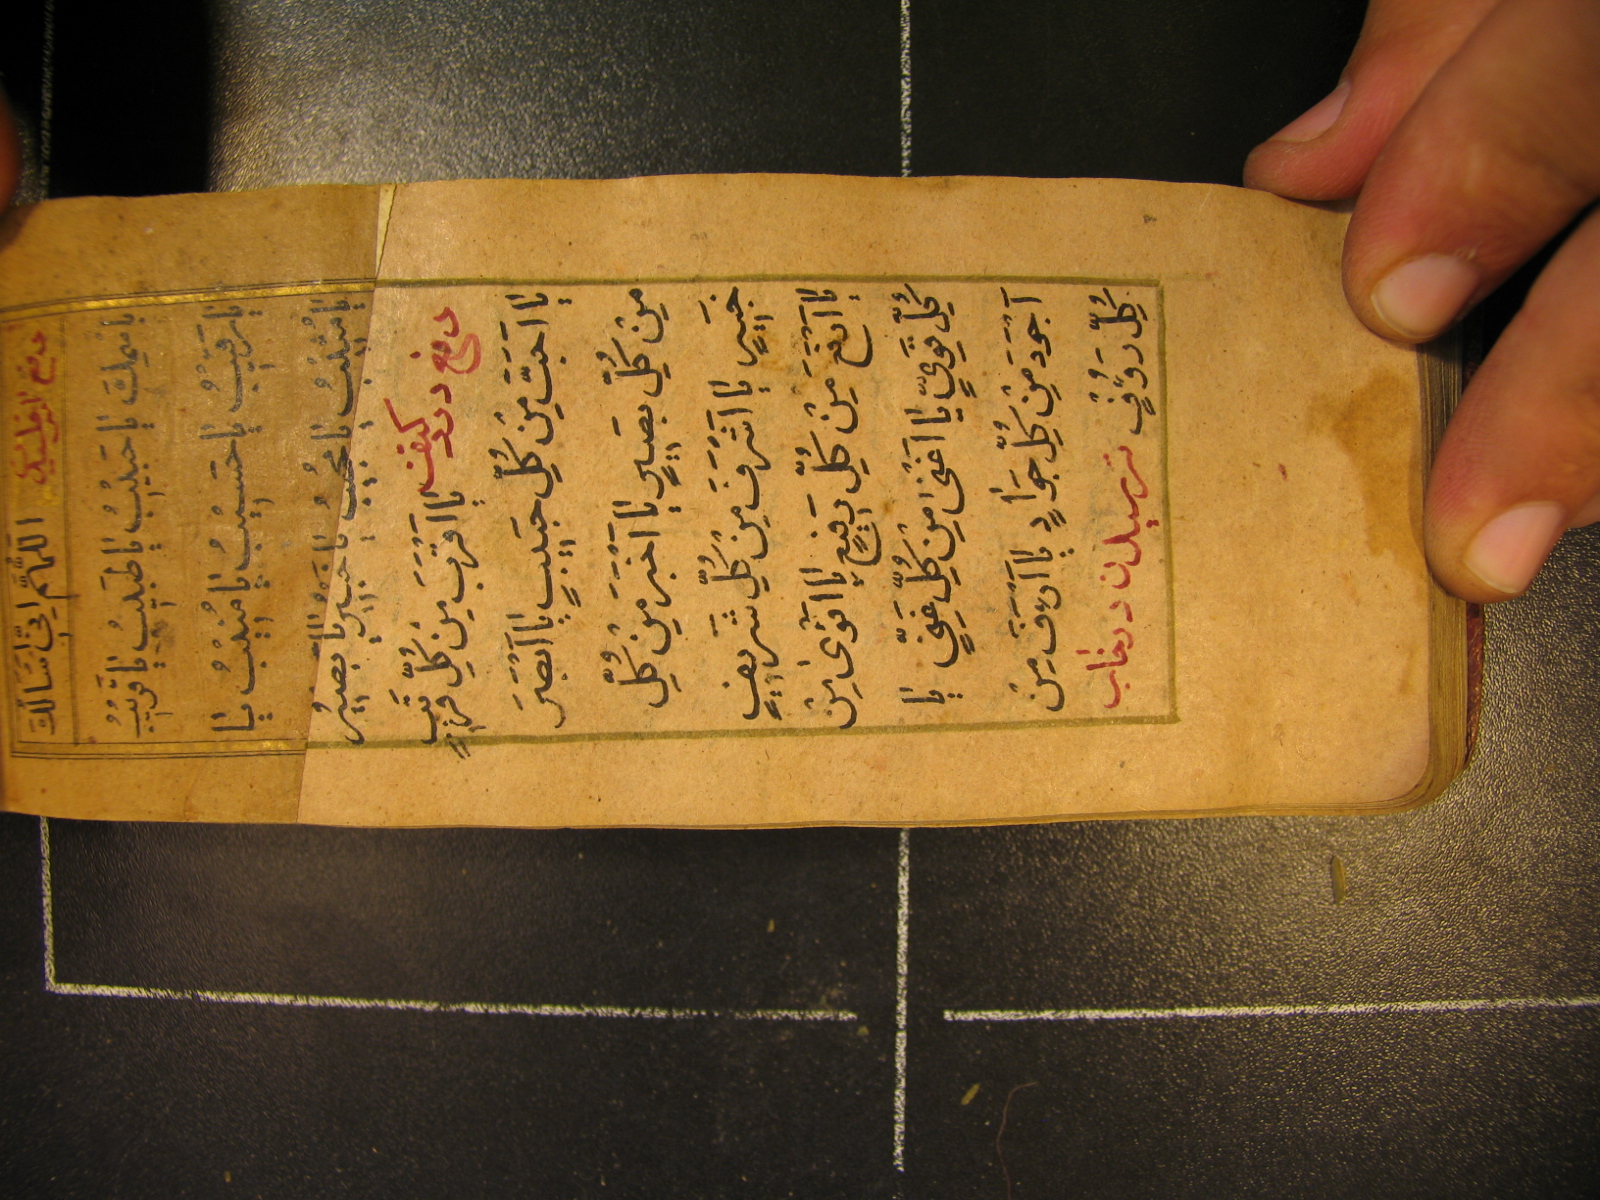 دفع اللّهُمَّ اِنّى اَسْاَلُكَ
بِاسْمِكَ يا حَبيبُ يا طَبيبُ يا قَريبُ
يا رَقيبُ يا حَسيبُ يا مُنيبُ يا
يا مُثيبُ يا مُجيبُ يا خَبيرُ يا بَصيرُ
دفع درد کتف يا اَقْرَبَ مِنْ كُلِّ قَريبٍ
يا اَحَبَّ مِنْ كُلِّ حَبيبٍ يا اَبْصَرَ
مِنْ كُلِّ بَصيرٍ يا اَخْبَرَ مِنْ كُلِّ
خَبيرٍ يا اَشْرَفَ مِنْ كُلِّ شَريفٍ
يا اَرْفَعَ مِنْ كُلِّ رَفيعٍ يا اَقْوى مِنْ
كُلِّ قَوِيٍّ يا اَغْنى مِنْ كُلِّ غَنِيٍّ يا
اَجْوَدَ مِنْ كُلِّ جَوادٍ يا اَرْءَفَ مِنْ
كُلِّ رَؤُفٍ ترسیدن درخاب